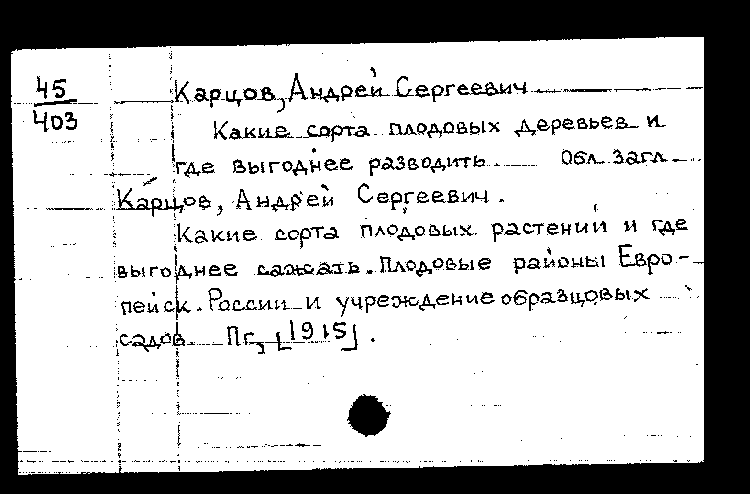 45
403
Карцов, Андрей Сергеевич
Какие сорта плодовых деревьев и
где выгоднее разводить Обл. загл.
Карцов, Андрей Сергеевич.
Какие сорта плодовых растений и где
выгоднее сажать. Плодовые районы Евро-
пейск. России и учреждение образцовых
садов. Пг, [1915].